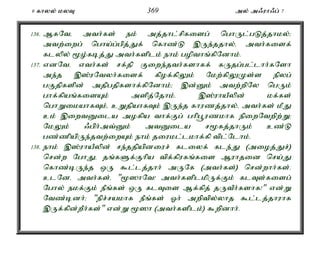 9 காலல் மலவு 369 அல் அஃராஃப் 7
136. ஆகவே, அவர்கள் நம் அத்தாட்சிகளைப் பொருட்படுத்தாமல்;
அவற்றைப் பொய்ப்பித்துக் கொண்டு இருந்ததால், அவர்களைக்
கடலில் மூழ்கடித்து அவர்களிடம் நாம் பழிவாங்கினோம்.
137. எனவே, எவர்கள் சக்தி குறைந்தவர்களாகக் கருதப்பட்டார்களோ
அந்த இஸ்ரவேலர்களைக் கிழக்கிலும் மேற்கிலுமுள்ள நிலப்
பகுதிகளின் அதிபதிகளாக்கினோம்; இன்னும் அவற்றிலே பெரும்
பாக்கியங்களையும் அளித்தோம். இஸ்ராயீலின் மக்கள்
பொறுமையாகவும், உறுதியாகவும் இருந்த காரணத்தால், அவர்கள் மீது
உம் இறைவனுடைய அழகிய வாக்குப் பரிபூரணமாக நிறைவேறிற்று;
மேலும் ஃபிர்அவ்னும் அவனுடைய சமூகத்தாரும் உண்டு
பண்ணியிருந்தவற்றையும் நாம் தரைமட்டமாக்கி விட்டோம்.
138. நாம் இஸ்ராயீலின் சந்ததியினரைக் கடலைக் கடந்து (அழைத்துச்)
சென்ற போது, தங்களுக்குரிய விக்கிரகங்களை ஆராதனை செய்து
கொண்டிருந்த ஒரு கூட்டத்தார் அருகே (அவர்கள்) சென்றார்கள்.
உடனே, அவர்கள், "மூஸாவே! அவர்களிடமிருக்கும் கடவுள்களைப்
போல் நமக்கும் நீங்கள் ஒரு கடவுளை ஆக்கித் தருவீர்களாக!" என்று
வேண்டினர்; "நிச்சயமாக நீங்கள் ஓர் அறிவில்லாத கூட்டத்தாராக
இருக்கின்றீர்கள்" என்று மூஸா (அவர்களிடம்) கூறினார்.